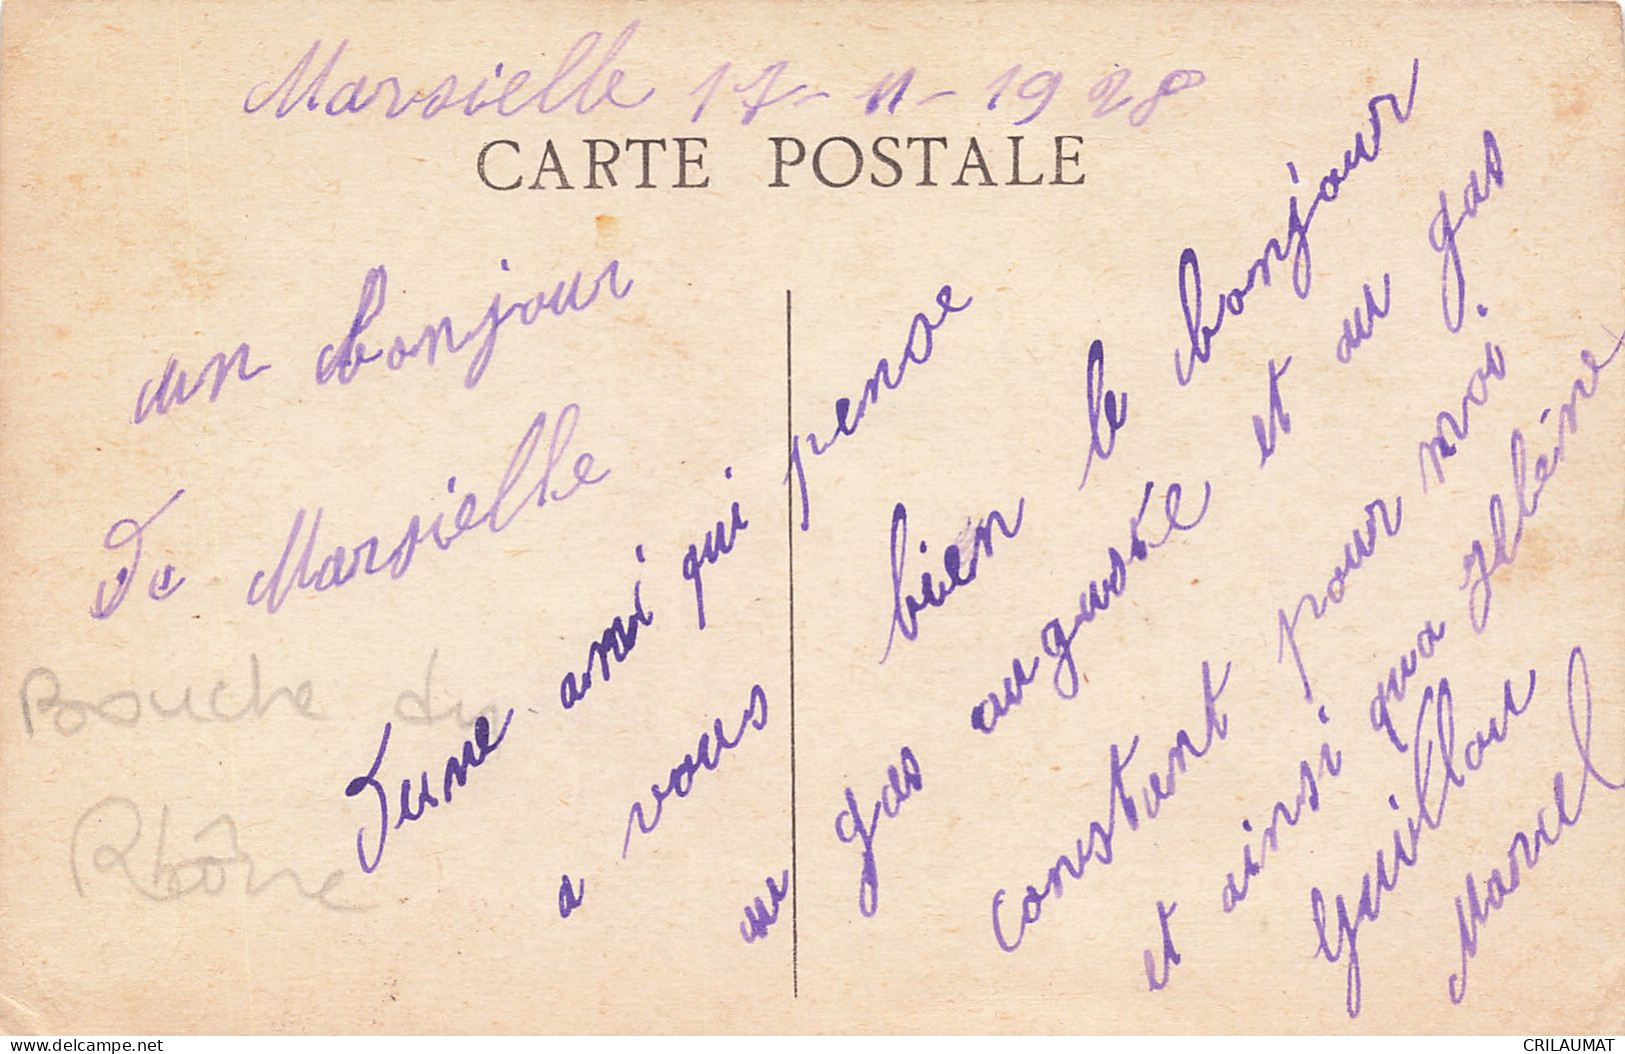 Marsielle 17-11-1928
CARTE POSTALE
un bonjour
De Marsielle
D'une ami qui pense
a vous bien le bonjour
au gas auguste et au gas
constant pour moi
et ainsi qua
Guillou
Marcel
Bouche du
Rhône
delcampe.net
CRILAUMAT